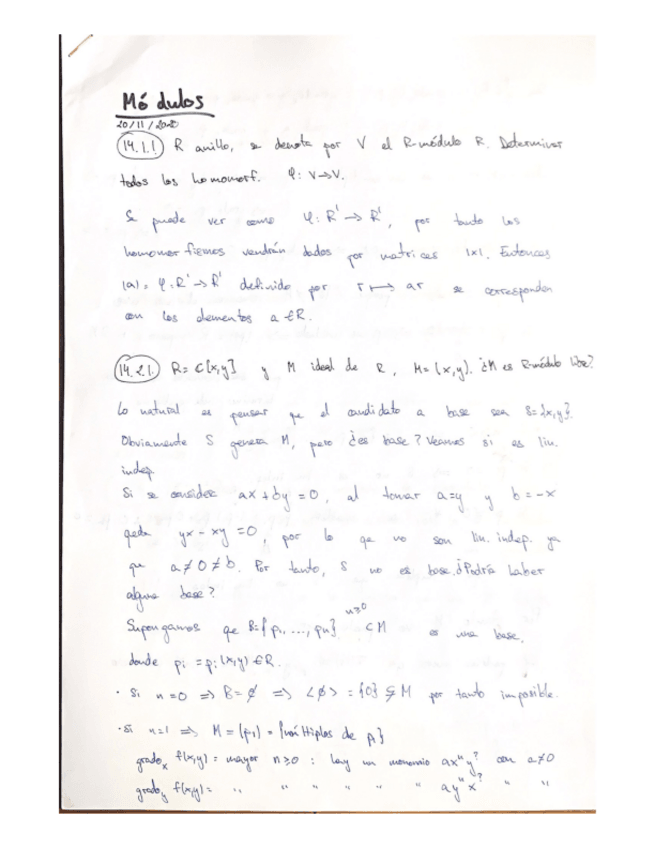 Módulos
20/11/2020
14.1.1 R anillo, se denota por V el R-módulo R. Determinar
todos los homomorf. φ: V→V.
Se puede ver como φ: R¹ → R¹, por tanto los
homomorfismos vendrán dados por matrices 1x1. Entonces
(a) = φ: R¹ → R¹ definido por r ↦ ar se corresponden
con los elementos a ∈ R.
14.2.1. R = C[x,y] y M ideal de R, M = (x,y). ¿M es R-módulo libre?
Lo natural es pensar que el candidato a base sea S={x,y}.
Obviamente S genera M, pero ¿es base? Veamos si es lin.
indep.
Si se considera ax + by = 0, al tomar a=y y b=-x
queda yx - xy = 0, por lo que no son lin. indep. ya
que a ≠ 0 ≠ b. Por tanto, S no es base. ¿Podría haber
alguna base?
Supongamos que B={p₁, ..., pₙ} n≥0 ⊂ M es una base,
donde pᵢ = pᵢ(x,y) ∈ R.
· Si n=0 ⇒ B = ∅ ⇒ <∅> = {0} ⊊ M por tanto imposible.
· Si n=1 ⇒ M = (p₁) = {múltiplos de p₁}
gradoₓ f(x,y) = mayor n≥0 : hay un monomio axⁿy^? con a≠0
grado_y f(x,y) = " " " " " " ayⁿx^? " "